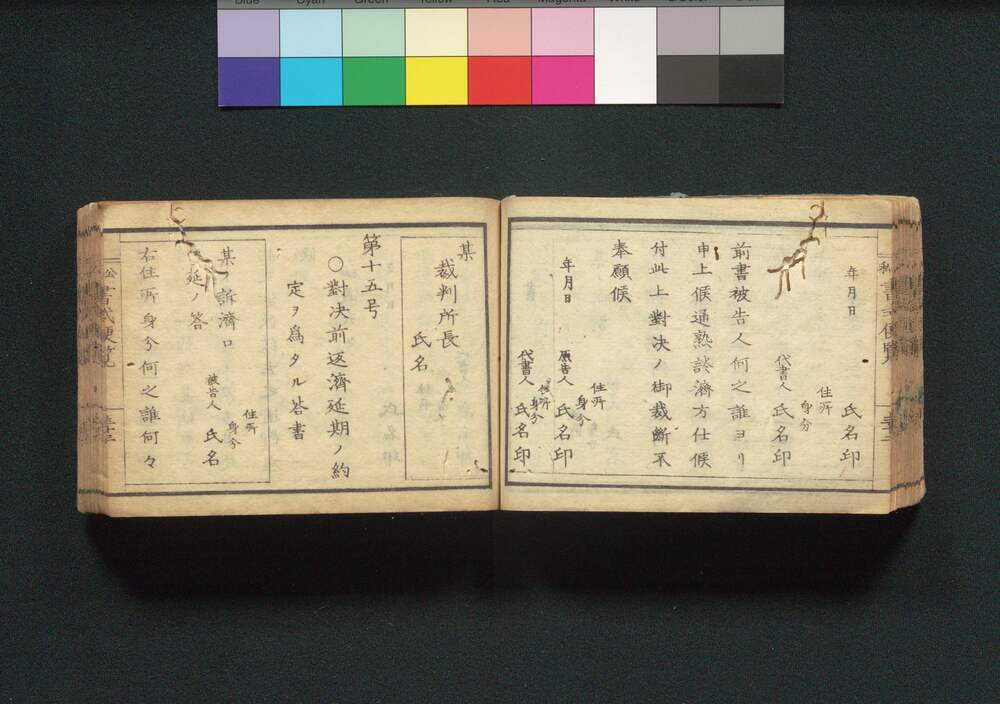 年月日
氏名印
住所
身分
代書人 氏名印
前書被告人何之誰ヨリ
申上候通熟談済方仕候
付此上對决ノ御裁斷不
奉願候
年月日
住所
身分
原告人 氏名印
住所
身分
代書人 氏名印
某
裁判所長
氏名
第十五号
〇對决前返濟延期ノ約
定ヲ爲タル答書
某訴濟口
延ノ答
住所
身分
被告人 氏名
右住所身分何之誰何々
書式便覧